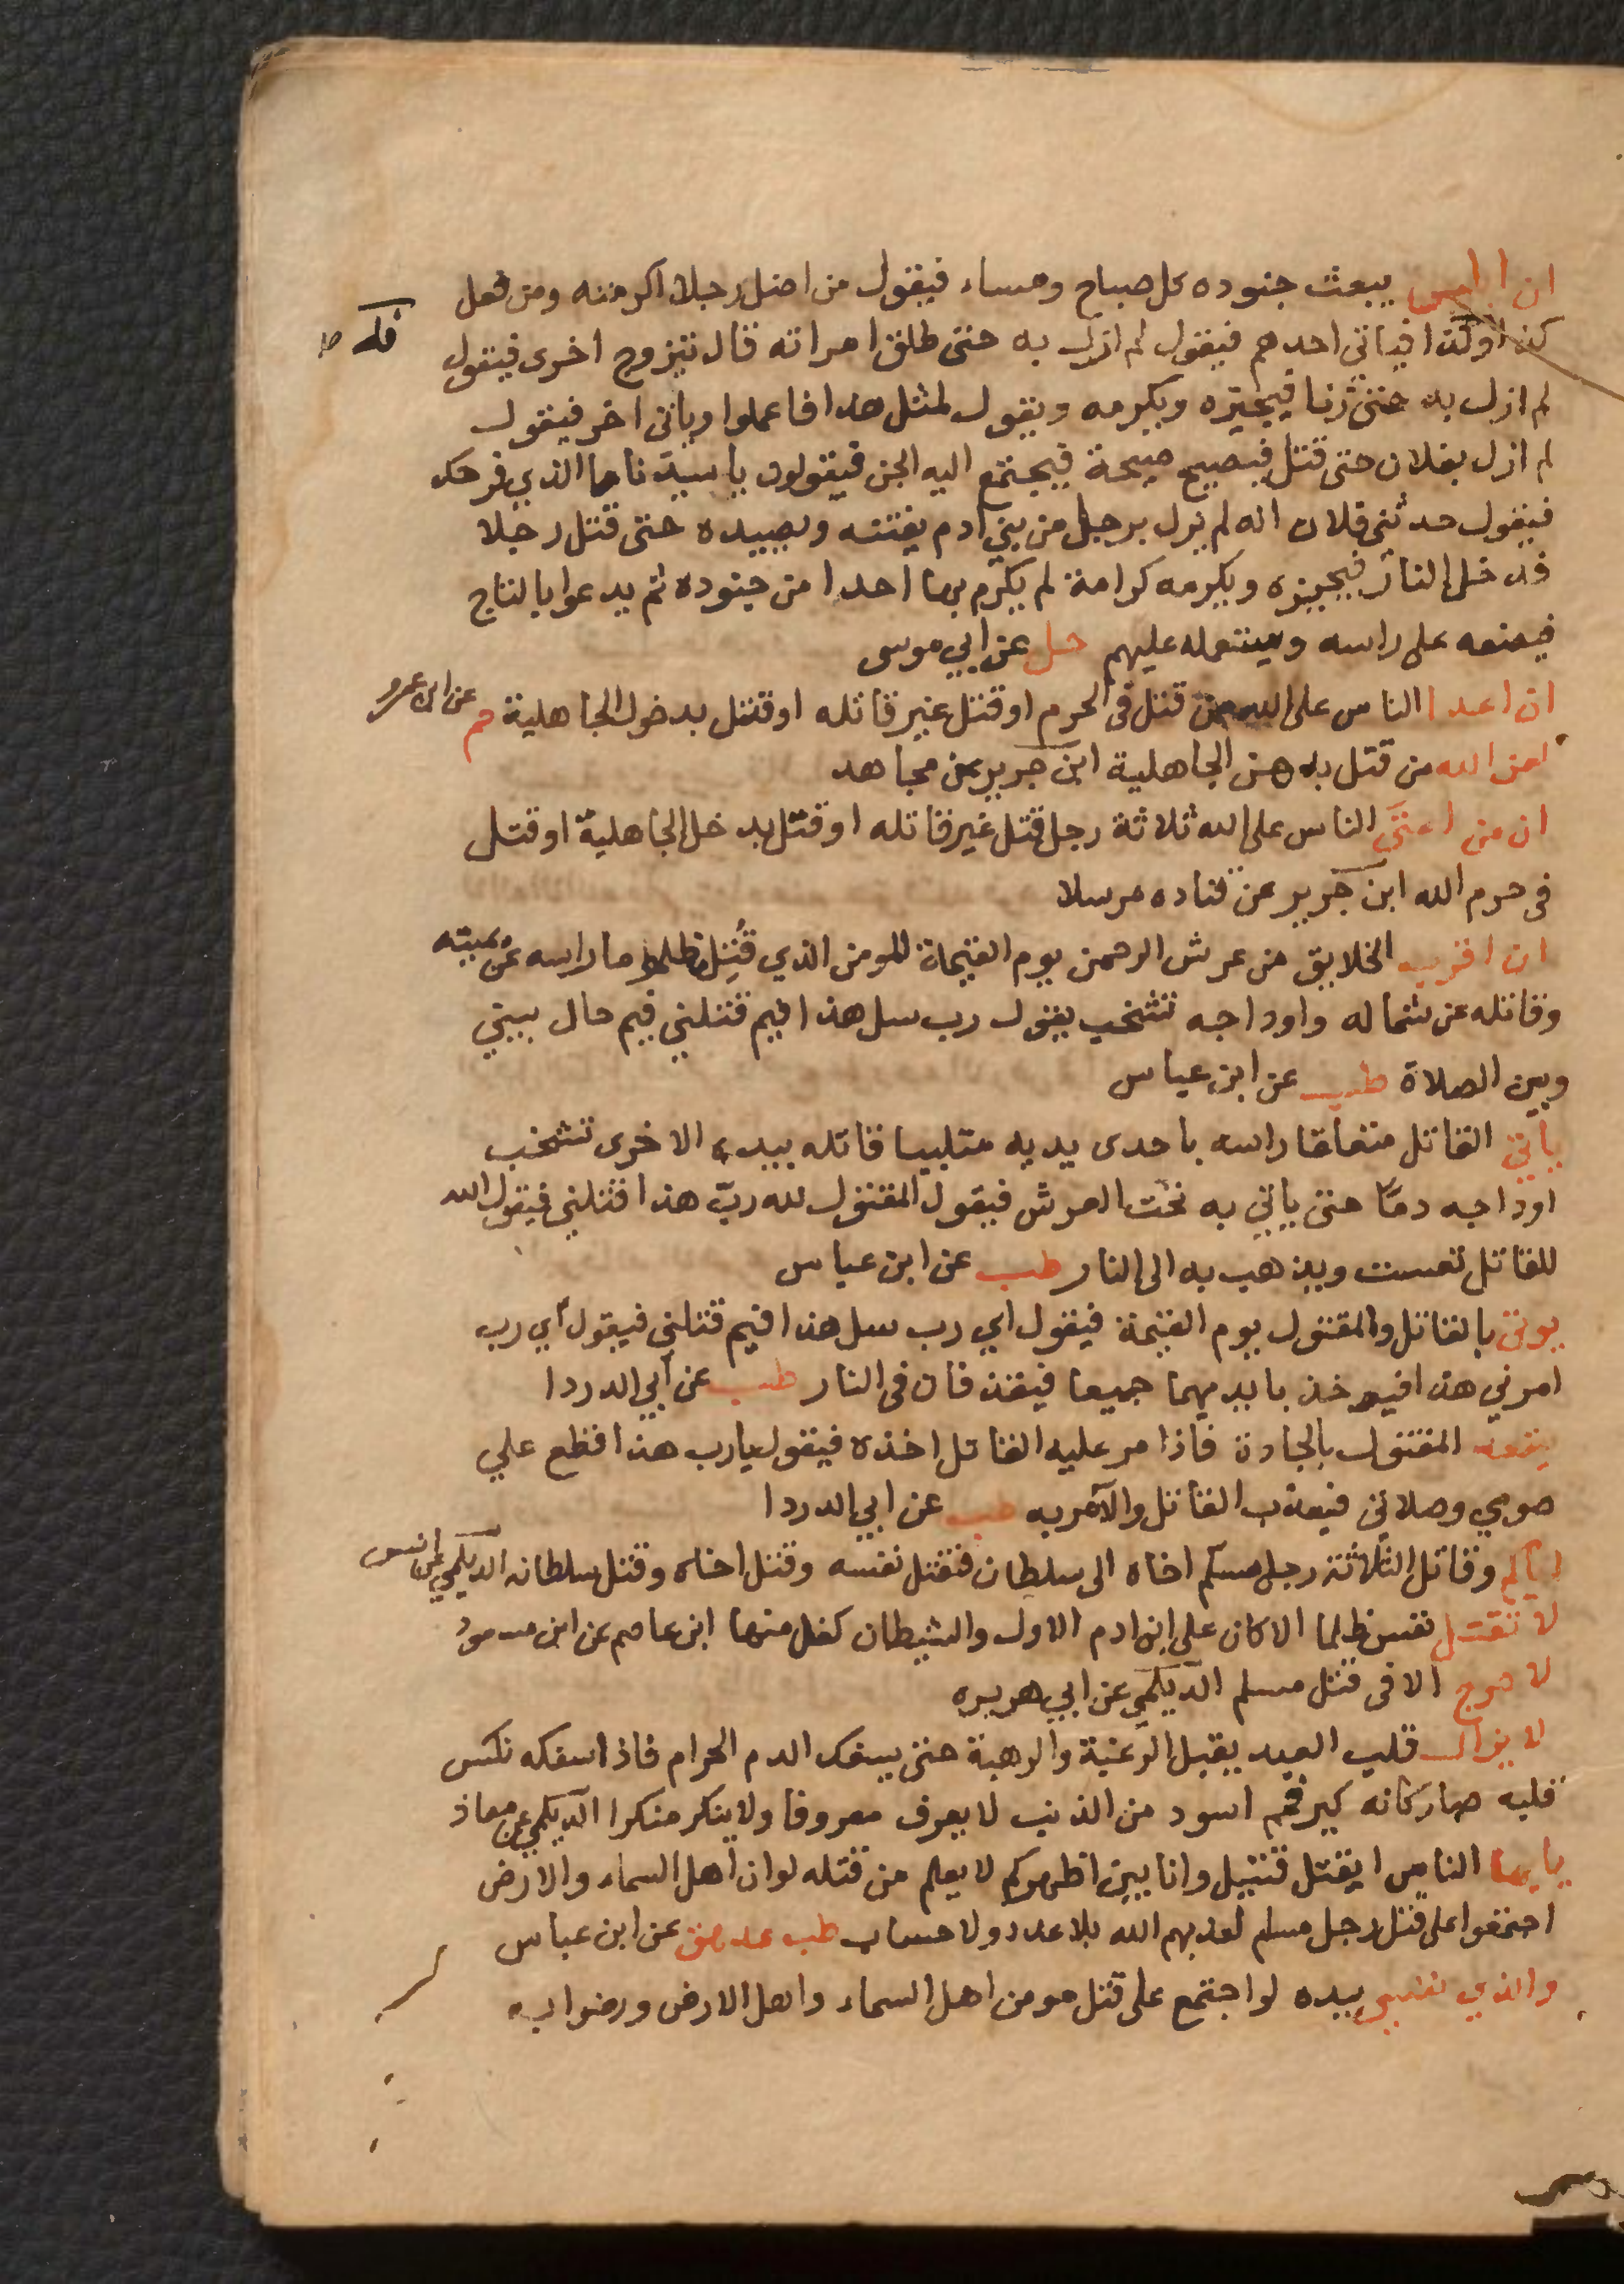 ان ابليس يبعث جنوده كل صباح ومساء فيقول من اضل رجلا اكرمته ومن فعل
كذا وكذا فياتي احدهم فيقول لم ازل به حتى طلق امراته قال تتزوج اخرى فيقول
لم ازل به حتى زنا فيجيزه ويكرمه ويقول لمثل هذا فاعملوا وياتى اخر فيقول
لم ازل بفلان حتى قتل فيصيح صيحة فيجتمع اليه الجن فيقولون يا سيدنا ما الذي فرحك
فيقول حدثنى فلان انه لم يزل برجل من بني ادم يفتنه ويصيده حتى قتل رجلا
فدخل النار فيجيزه ويكرمه كرامة لم يكرم بها احدا من جنوده ثم يدعوا بالتاج
فيضعه على راسه ويستعمله عليهم حل عن ابي موسى
ان اعدا الناس على الله من قتل فى الحرم او قتل غير قاتله او قتل بدخول الجاهلية حم عن ابن عمرو
لعن الله من قتل بدهن الجاهلية ابن جرير عن مجاهد
ان من اعتى الناس على الله ثلاثة رجل قتل غير قاتله او قتل بدخل الجاهلية او قتل
فى حرم الله ابن جرير عن قتاده مرسلا
ان اقرب الخلايق من عرش الرحمن يوم القيمة المومن الذي قُتِل مظلوما راسه عن يمينه
وقاتله عن شماله واوداجه تشخب يقول رب سل هذا فيم قتلني فيم حال بيني
وبين الصلاة طب عن ابن عباس
ياتي القاتل متعلقا راسه باحدى يديه متلببا قاتله بيده الاخرى تشخب
اوداجه دمًا حتى ياتي به تحت العرش فيقول المقتول لله ربّ هذا قتلني فيقول الله
للقاتل تعست ويذهب به الى النار طب عن ابن عباس
يوتى بالقاتل والمقتول يوم القيمة فيقول اي رب سل هذا فيم قتلني فيقول أي رب
امرني هذا فيوخذ بايديهما جميعا فيقذفان فى النار طب عن أبي الدردا
يقعد المقتول بالجادة فاذا مر عليه القاتل اخذه فيقول يارب هذا قطع علي
صومي وصلاتى فيعذب القاتل والآمر به طب عن ابي الدردا
اياكم وقاتل الثلاثة رجل مسلم اخاه الى سلطان فقتل نفسه وقتل اخاه وقتل سلطانه الديلمي عن انس
لا تقتل نفس ظلما الا كان على ابن ادم الاول والشيطان كفل منها ابن عاصم عن ابن مسعود
لا حرج الا فى قتل مسلم الديلمي عن ابي هريره
لا يزال قلب العبد يقبل الرغبة والرهبة حتى يسفك الدم الحرام فاذا سفكه نكس
قلبه صار كانه كير فحم اسود من الذنب لا يعرف معروفا ولا ينكر منكرا الديلمي عن معاذ
يايها الناس ايقتل قتيل وانا بين اظهركم لا يعلم من قتله لو ان اهل السماء والارض
اجتمعوا على قتل رجل مسلم لعذبهم الله بلا عدد ولا حساب طب عد هق عن ابن عباس
والذي نفسي بيده لو اجتمع على قتل مومن اهل السماء واهل الارض ورضوا به